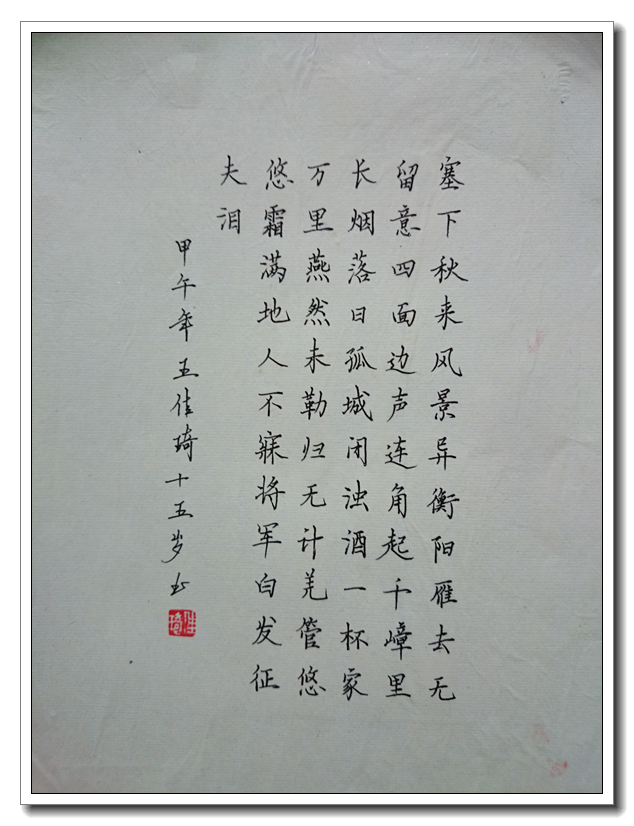 塞下秋来风景异衡阳雁去无
留意四面边声连角起千嶂里
长烟落日孤城闭浊酒一杯家
万里燕然未勒归无计羌管悠
悠霜满地人不寐将军白发征
夫泪
甲午年王佳琦十五岁书
佳琦